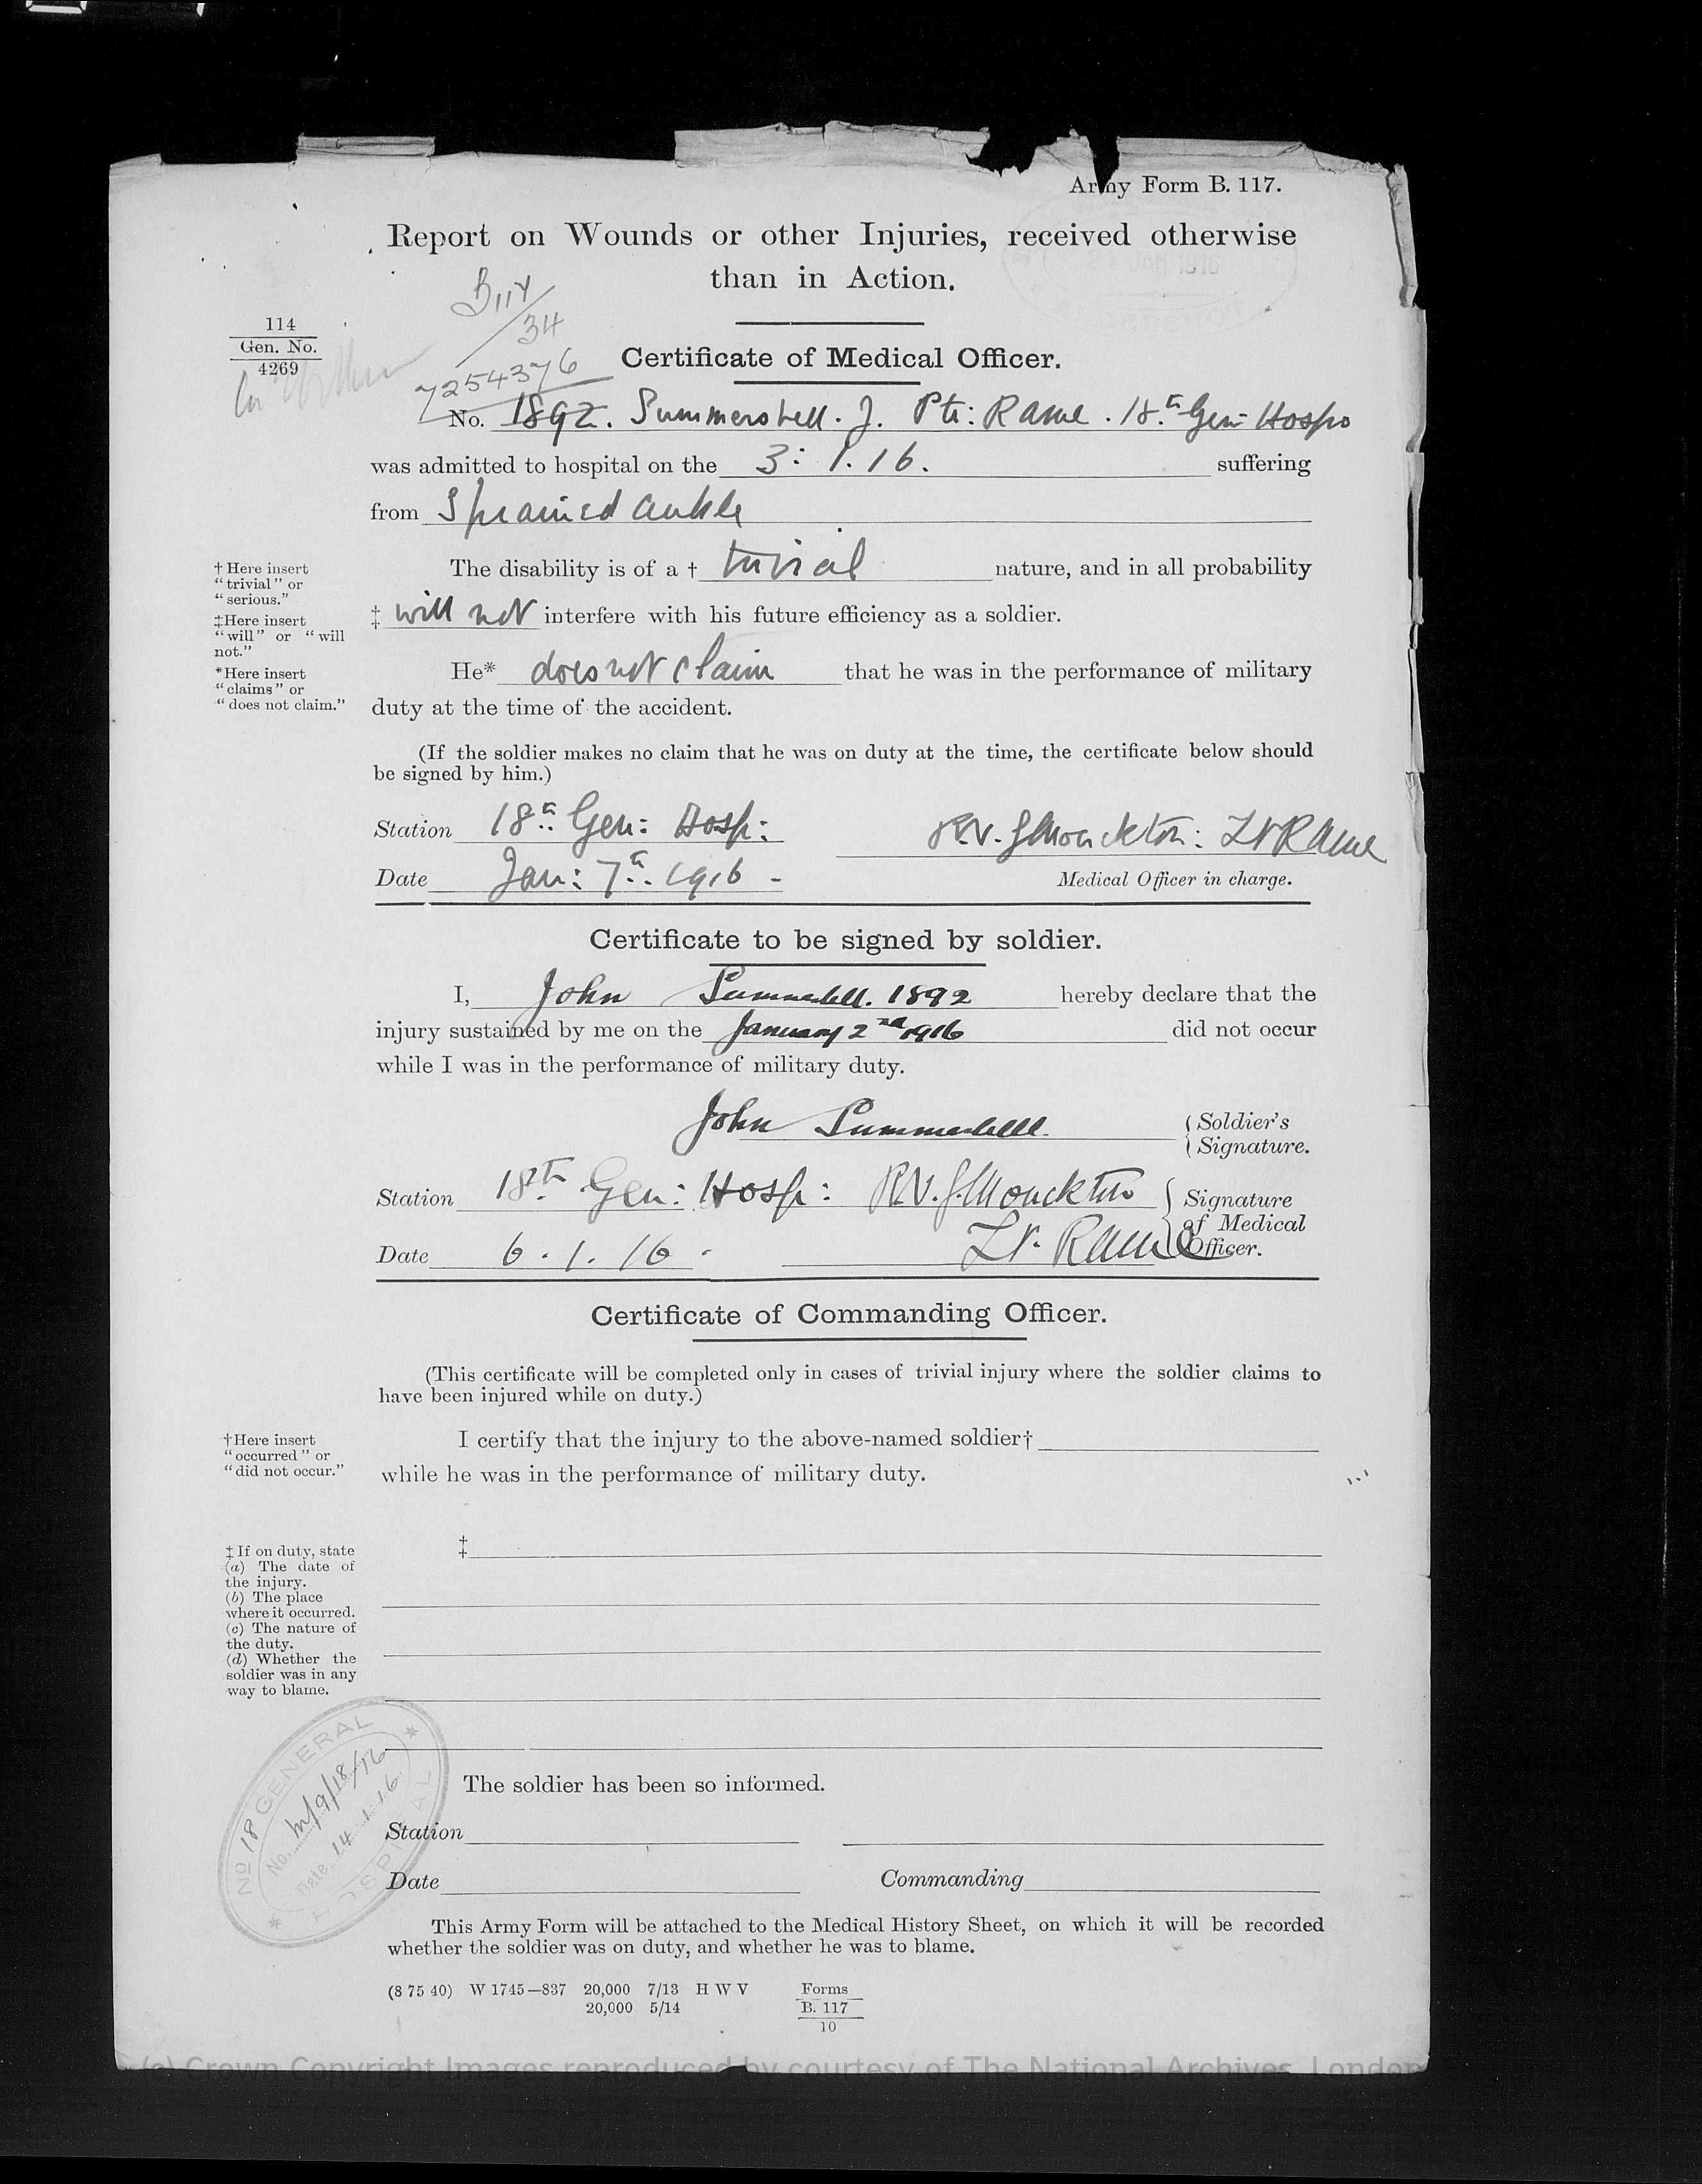 Army Form B. 117.
Report on Wounds or other Injuries, received otherwise
than in Action.
21 JAN 1916
B117/34
114
Gen. No.
4269
7254376
Certificate of Medical Officer.
No. 1892. Summersbell. J. Pte: RAMC. 18th Gen: Hosp
was admitted to hospital on the 3: 1. 16. suffering
from Sprained ankle
The disability is of a † trivial nature, and in all probability
‡ will not interfere with his future efficiency as a soldier.
He* does not claim that he was in the performance of military
duty at the time of the accident.
† Here insert
"trivial" or
"serious."
‡Here insert
"will" or "will
not."
*Here insert
"claims" or
"does not claim."
(If the soldier makes no claim that he was on duty at the time, the certificate below should
be signed by him.)
Station 18th Gen: Hosp: R.V. G. Monckton: Lt RAMC
Date Jan: 7th. 1916 - Medical Officer in charge.
Certificate to be signed by soldier.
I, John Summersbell. 1892 hereby declare that the
injury sustained by me on the January 2nd 1916 did not occur
while I was in the performance of military duty.
John Summersbell. {Soldier's
Signature.
Station 18th Gen: Hosp: R.V. G. Monckton {Signature
of Medical
Date 6. 1. 16. Lt. RAMC Officer.
Certificate of Commanding Officer.
(This certificate will be completed only in cases of trivial injury where the soldier claims to
have been injured while on duty.)
†Here insert
"occurred" or
"did not occur."
I certify that the injury to the above-named soldier†
while he was in the performance of military duty.
‡
‡ If on duty, state
(a) The date of
the injury.
(b) The place
where it occurred.
(c) The nature of
the duty.
(d) Whether the
soldier was in any
way to blame.
No 18 GENERAL HOSPITAL
No. M/9/18/16
Date 14.1.16.
The soldier has been so informed.
Station
Date Commanding
This Army Form will be attached to the Medical History Sheet, on which it will be recorded
whether the soldier was on duty, and whether he was to blame.
(8 75 40) W 1745—837 20,000 7/13 H W V Forms
20,000 5/14 B. 117
10
(c) Crown Copyright Images reproduced by courtesy of The National Archives, London